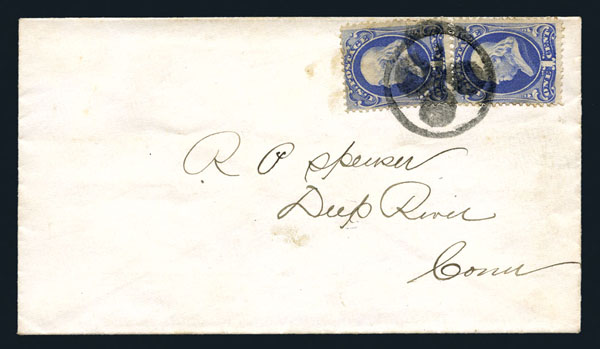 U.S. POSTAGE
R P Spencer
Deep River
Conn